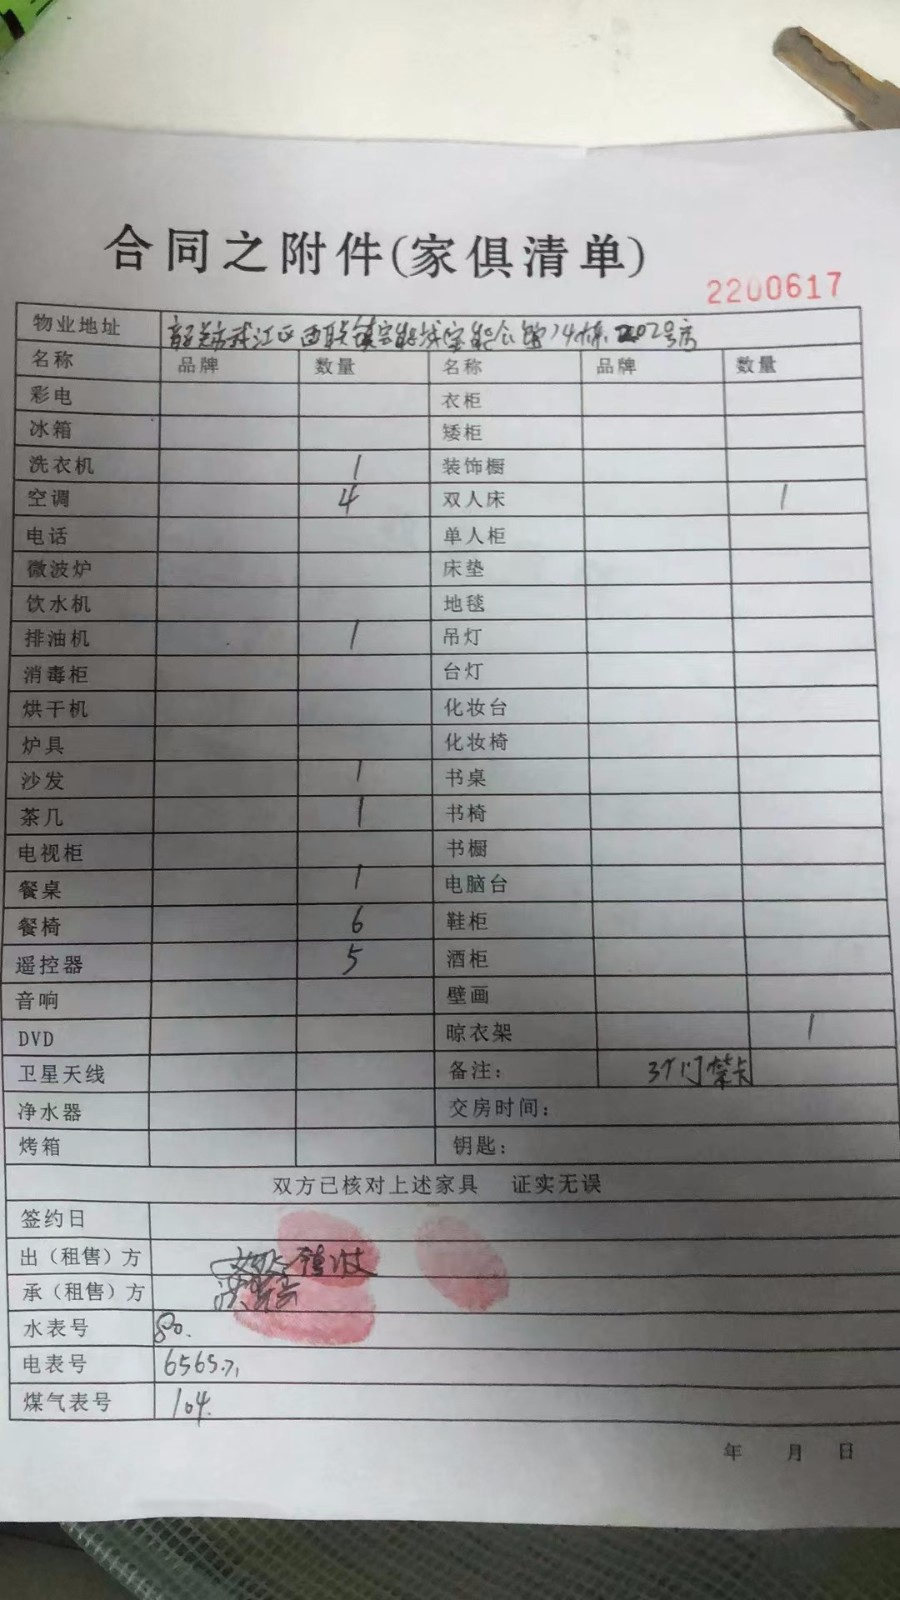 合同之附件(家俱清单)
2200617
物业地址 韶关市武江区西联镇宝能城宝能公馆14栋 202号房
名称 品牌 数量 名称 品牌 数量
彩电 衣柜
冰箱 矮柜
洗衣机 1 装饰橱
空调 4 双人床 1
电话 单人柜
微波炉 床垫
饮水机 地毯
排油机 1 吊灯
消毒柜 台灯
烘干机 化妆台
炉具 化妆椅
沙发 1 书桌
茶几 1 书椅
电视柜 书橱
餐桌 1 电脑台
餐椅 6 鞋柜
遥控器 5 酒柜
音响 壁画
DVD 晾衣架 1
卫星天线 备注: 3个门禁卡
净水器 交房时间:
烤箱 钥匙:
双方已核对上述家具 证实无误
签约日
出（租售）方
承（租售）方
水表号 80.
电表号 6565.71
煤气表号 104.
年 月 日